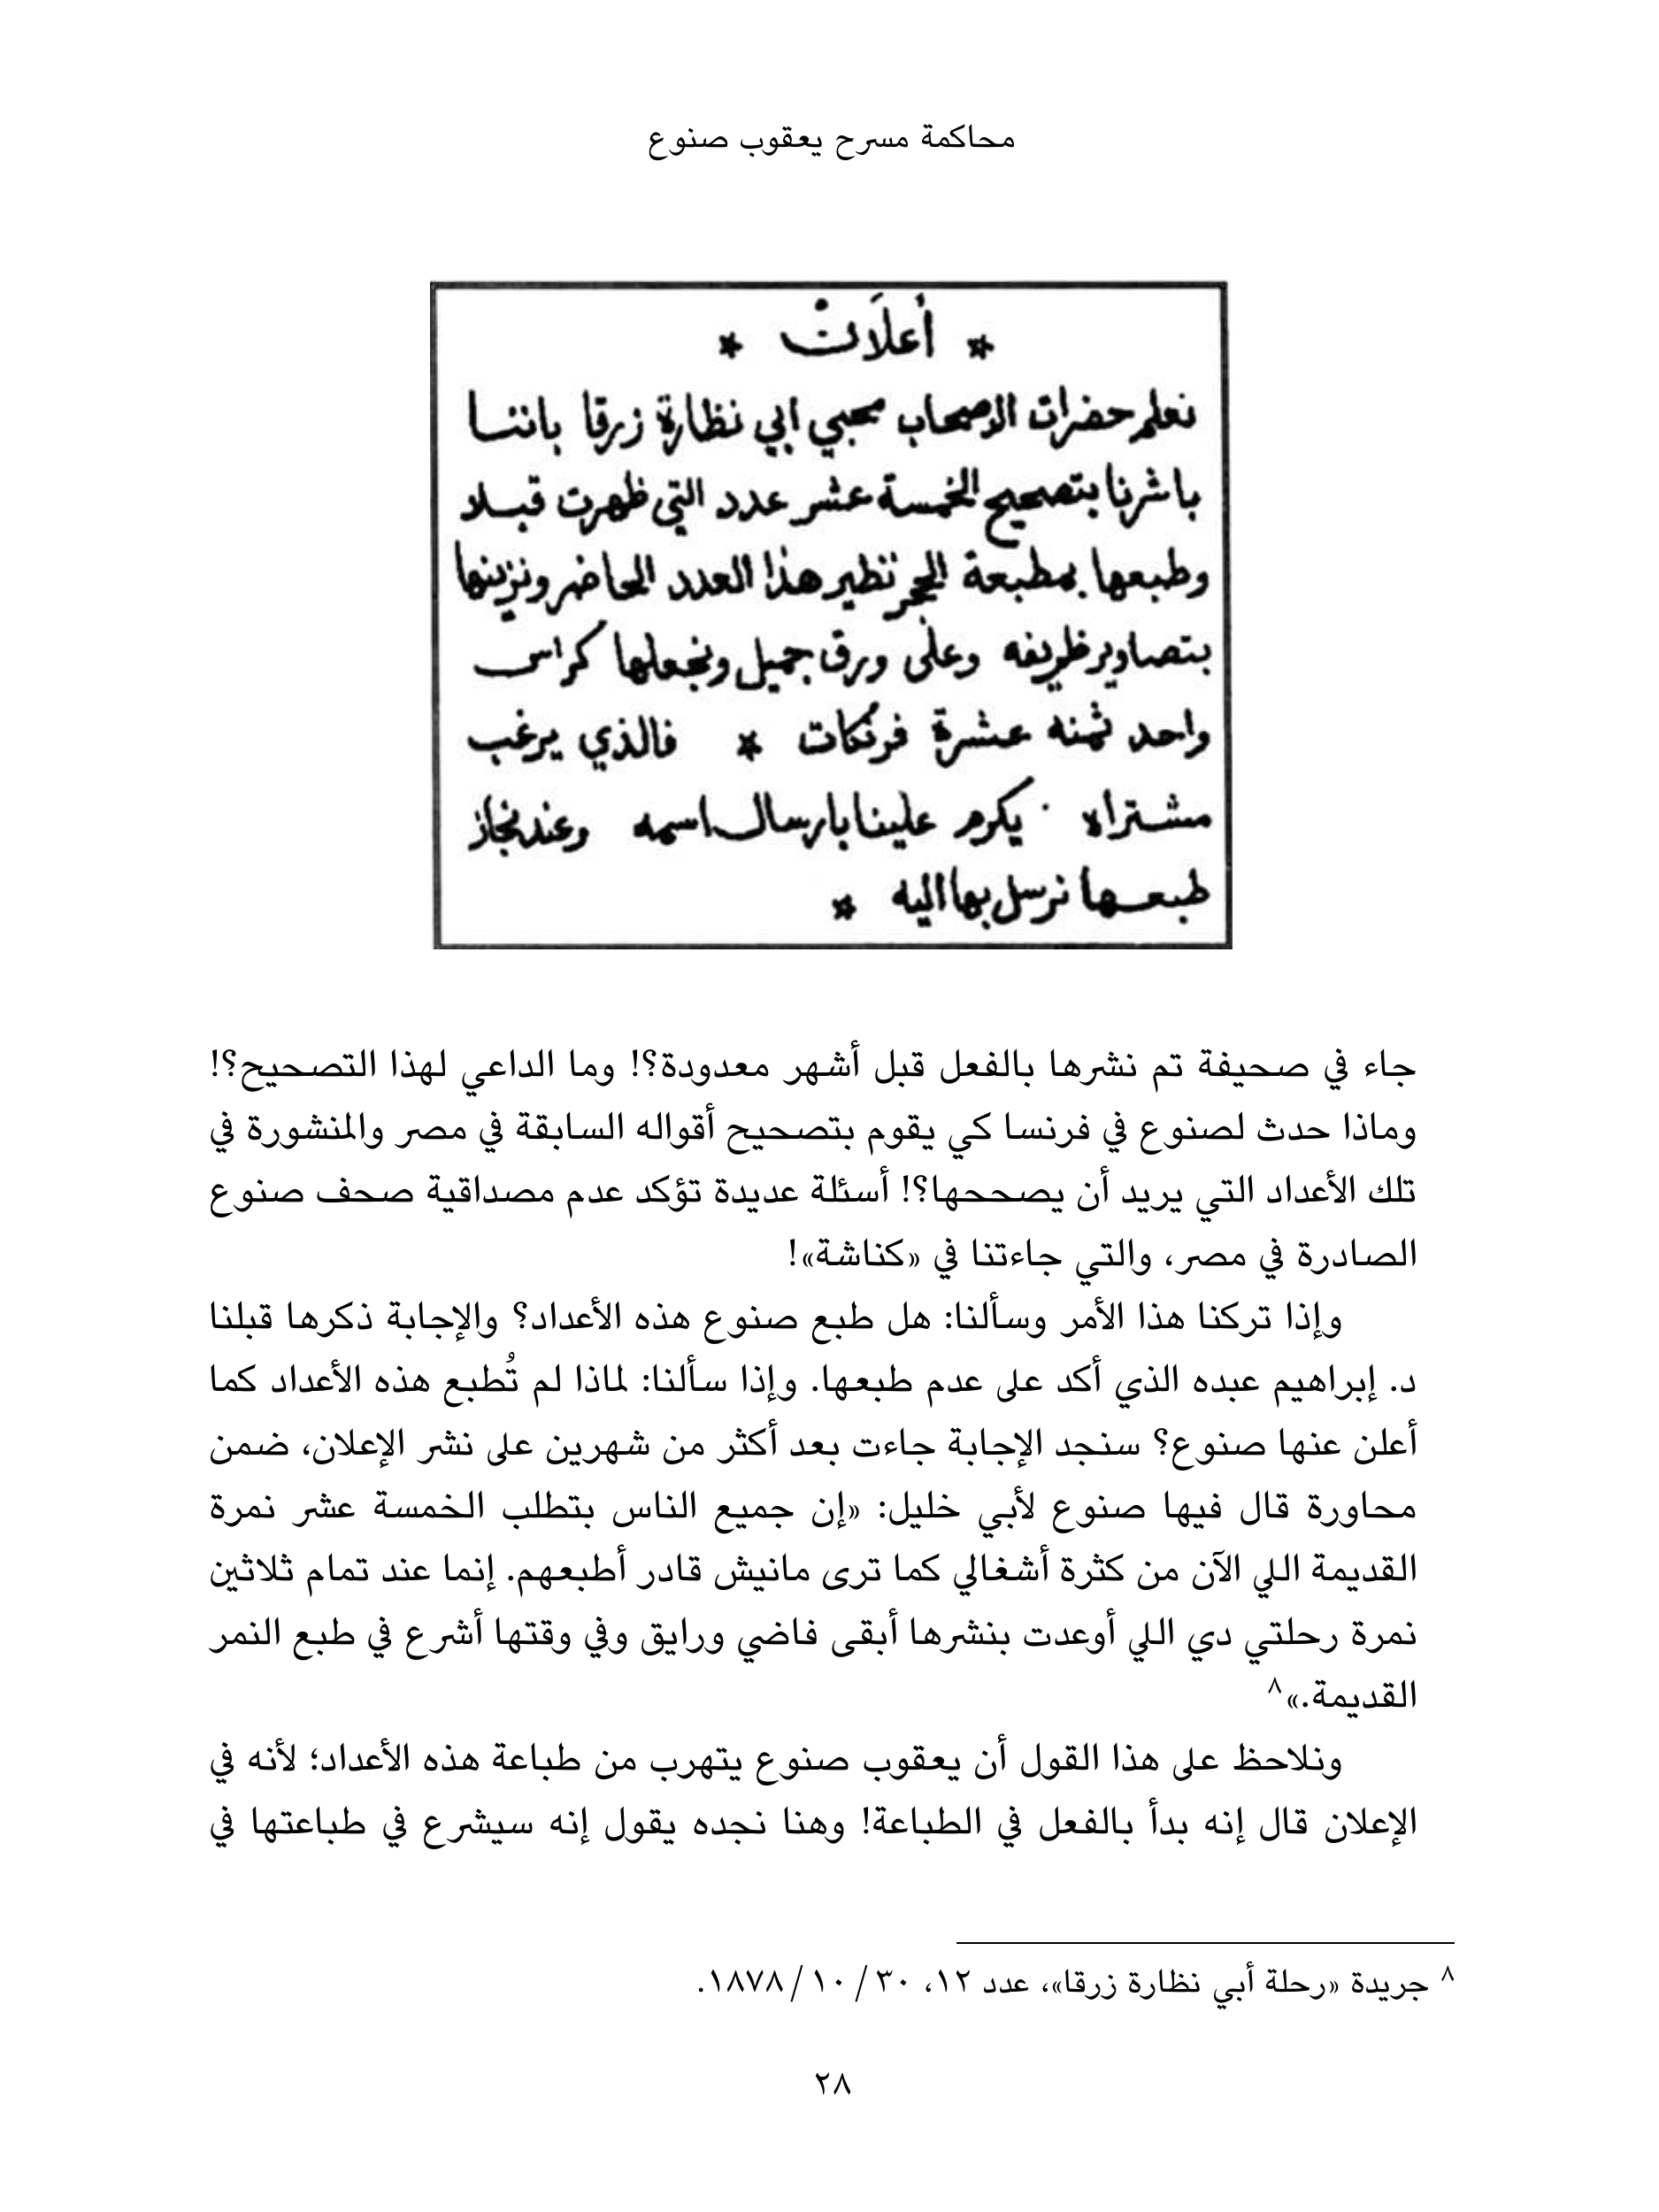 محاكمة مسرح يعقوب صنوع
* أعلَانْ *
نعلم حضرات الاصحاب محبي ابي نظارة زرقا باننا
باشرنا بتصحيح الخمسة عشر عدد التي ظهرت قبلا
وطبعها بمطبعة الحجر نظير هذا العدد الحاضر ونزينها
بتصاوير ظريفه وعلى ورق جميل ونجعلها كراس
واحد ثمنه عشرة فرنكات * فالذي يرغب
مشتراه يكرم علينا بارسال اسمه وعند نجاز
طبعها نرسل بها اليه *
جاء في صحيفة تم نشرها بالفعل قبل أشهر معدودة؟! وما الداعي لهذا التصحيح؟!
وماذا حدث لصنوع في فرنسا كي يقوم بتصحيح أقواله السابقة في مصر والمنشورة في
تلك الأعداد التي يريد أن يصححها؟! أسئلة عديدة تؤكد عدم مصداقية صحف صنوع
الصادرة في مصر، والتي جاءتنا في «كناشة»!
وإذا تركنا هذا الأمر وسألنا: هل طبع صنوع هذه الأعداد؟ والإجابة ذكرها قبلنا
د. إبراهيم عبده الذي أكد على عدم طبعها. وإذا سألنا: لماذا لم تُطبع هذه الأعداد كما
أعلن عنها صنوع؟ سنجد الإجابة جاءت بعد أكثر من شهرين على نشر الإعلان، ضمن
محاورة قال فيها صنوع لأبي خليل: «إن جميع الناس بتطلب الخمسة عشر نمرة
القديمة اللي الآن من كثرة أشغالي كما ترى مانيش قادر أطبعهم. إنما عند تمام ثلاثين
نمرة رحلتي دي اللي أوعدت بنشرها أبقى فاضي ورايق وفي وقتها أشرع في طبع النمر
القديمة.»٨
ونلاحظ على هذا القول أن يعقوب صنوع يتهرب من طباعة هذه الأعداد؛ لأنه في
الإعلان قال إنه بدأ بالفعل في الطباعة! وهنا نجده يقول إنه سيشرع في طباعتها في
٨ جريدة «رحلة أبي نظارة زرقا»، عدد ١٢، ٣٠ / ١٠ / ١٨٧٨.
٢٨